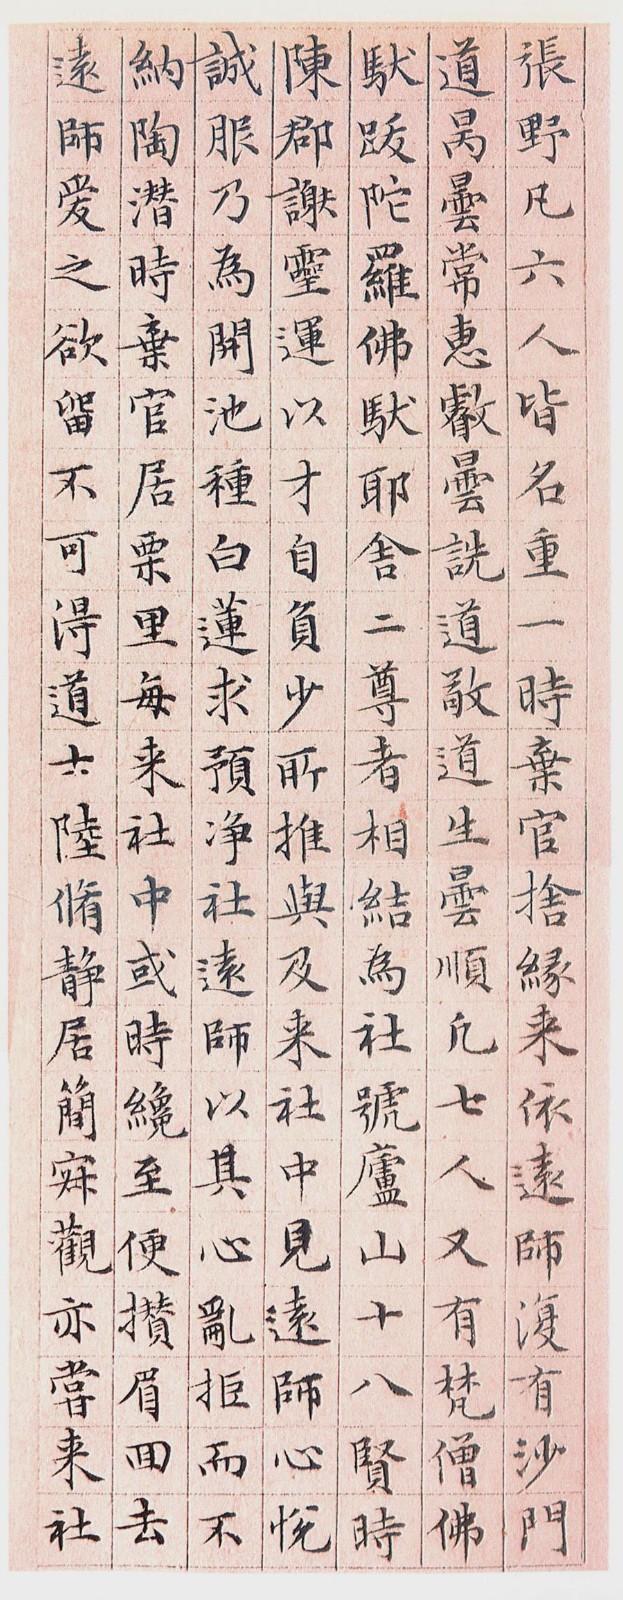 張野凡六人皆名重一時棄官捨緣来依遠師復有沙門
道昺曇常惠叡曇詵道敬道生曇順凡七人又有梵僧佛
馱跋陀羅佛馱耶舍二尊者相結為社號廬山十八賢時
陳郡謝靈運以才自負少所推與及来社中見遠師心悅
誠服乃為開池種白蓮求預净社遠師以其心亂拒而不
納陶潛時棄官居栗里每来社中或時纔至便攢眉回去
遠師爱之欲留不可得道士陸脩静居簡寂觀亦嘗来社